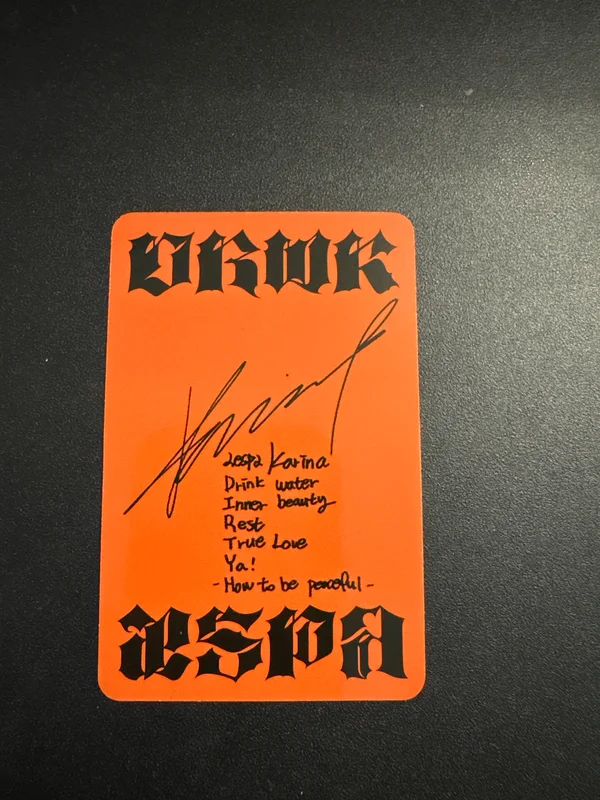 DRWK
Karina
aespa Karina
Drink water
Inner beauty
Rest
True Love
Ya!
- How to be peaceful -
æspa